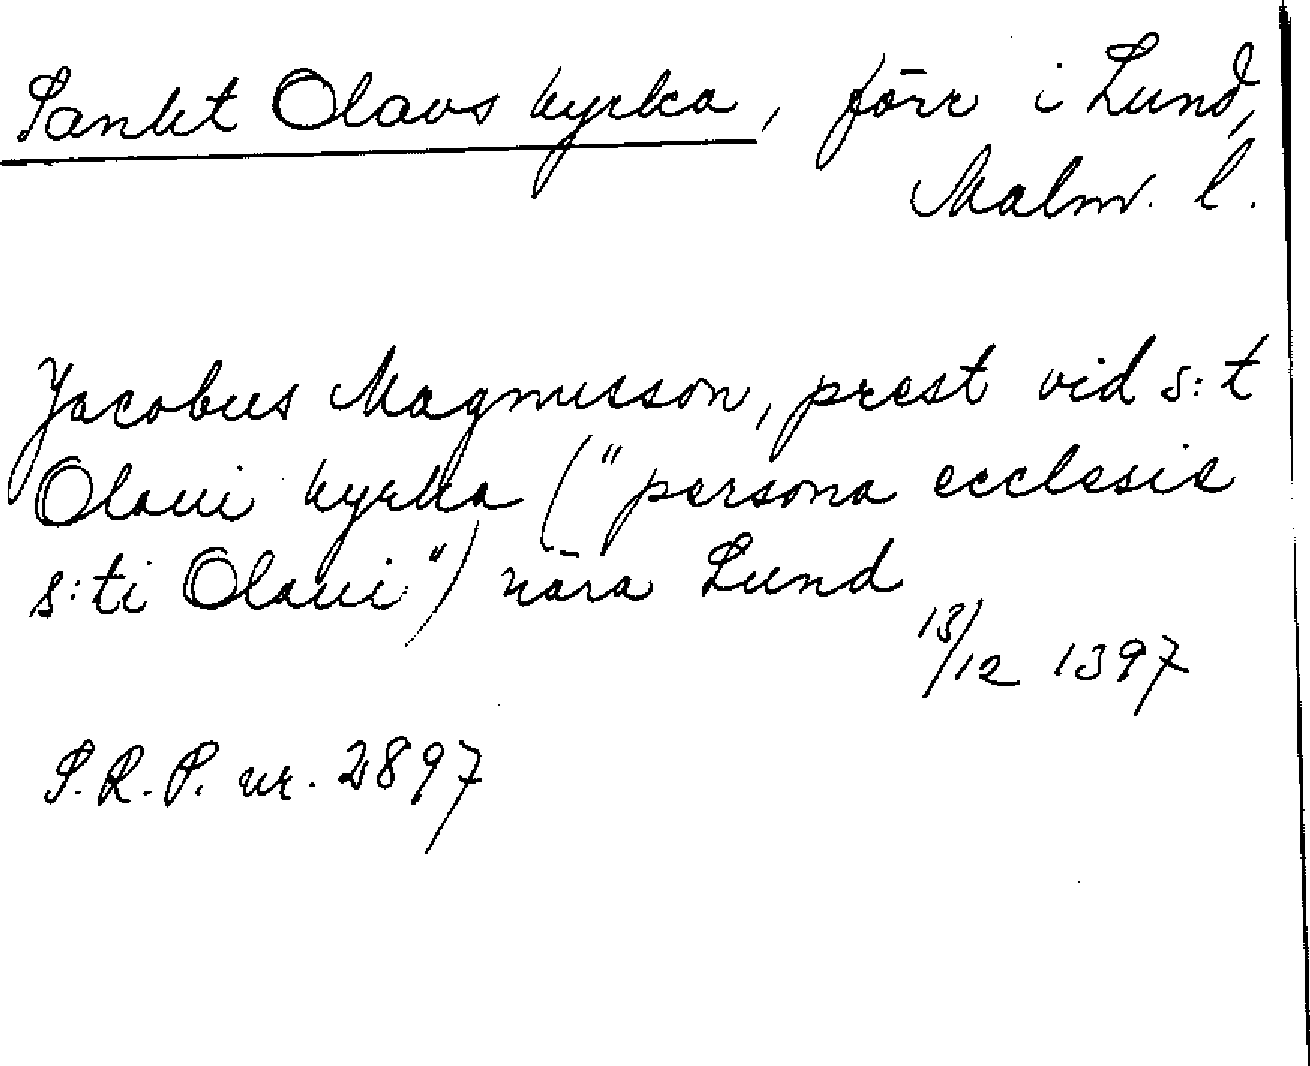 Sankt Olavs kyrka, förr i Lund,
Malm. l.
Jacobus Magnusson, prest vid s:t
Olaui kyrka ("persona ecclesie
s:ti Olaui") nära Lund
13/12 1397
S.R.P. nr. 2897